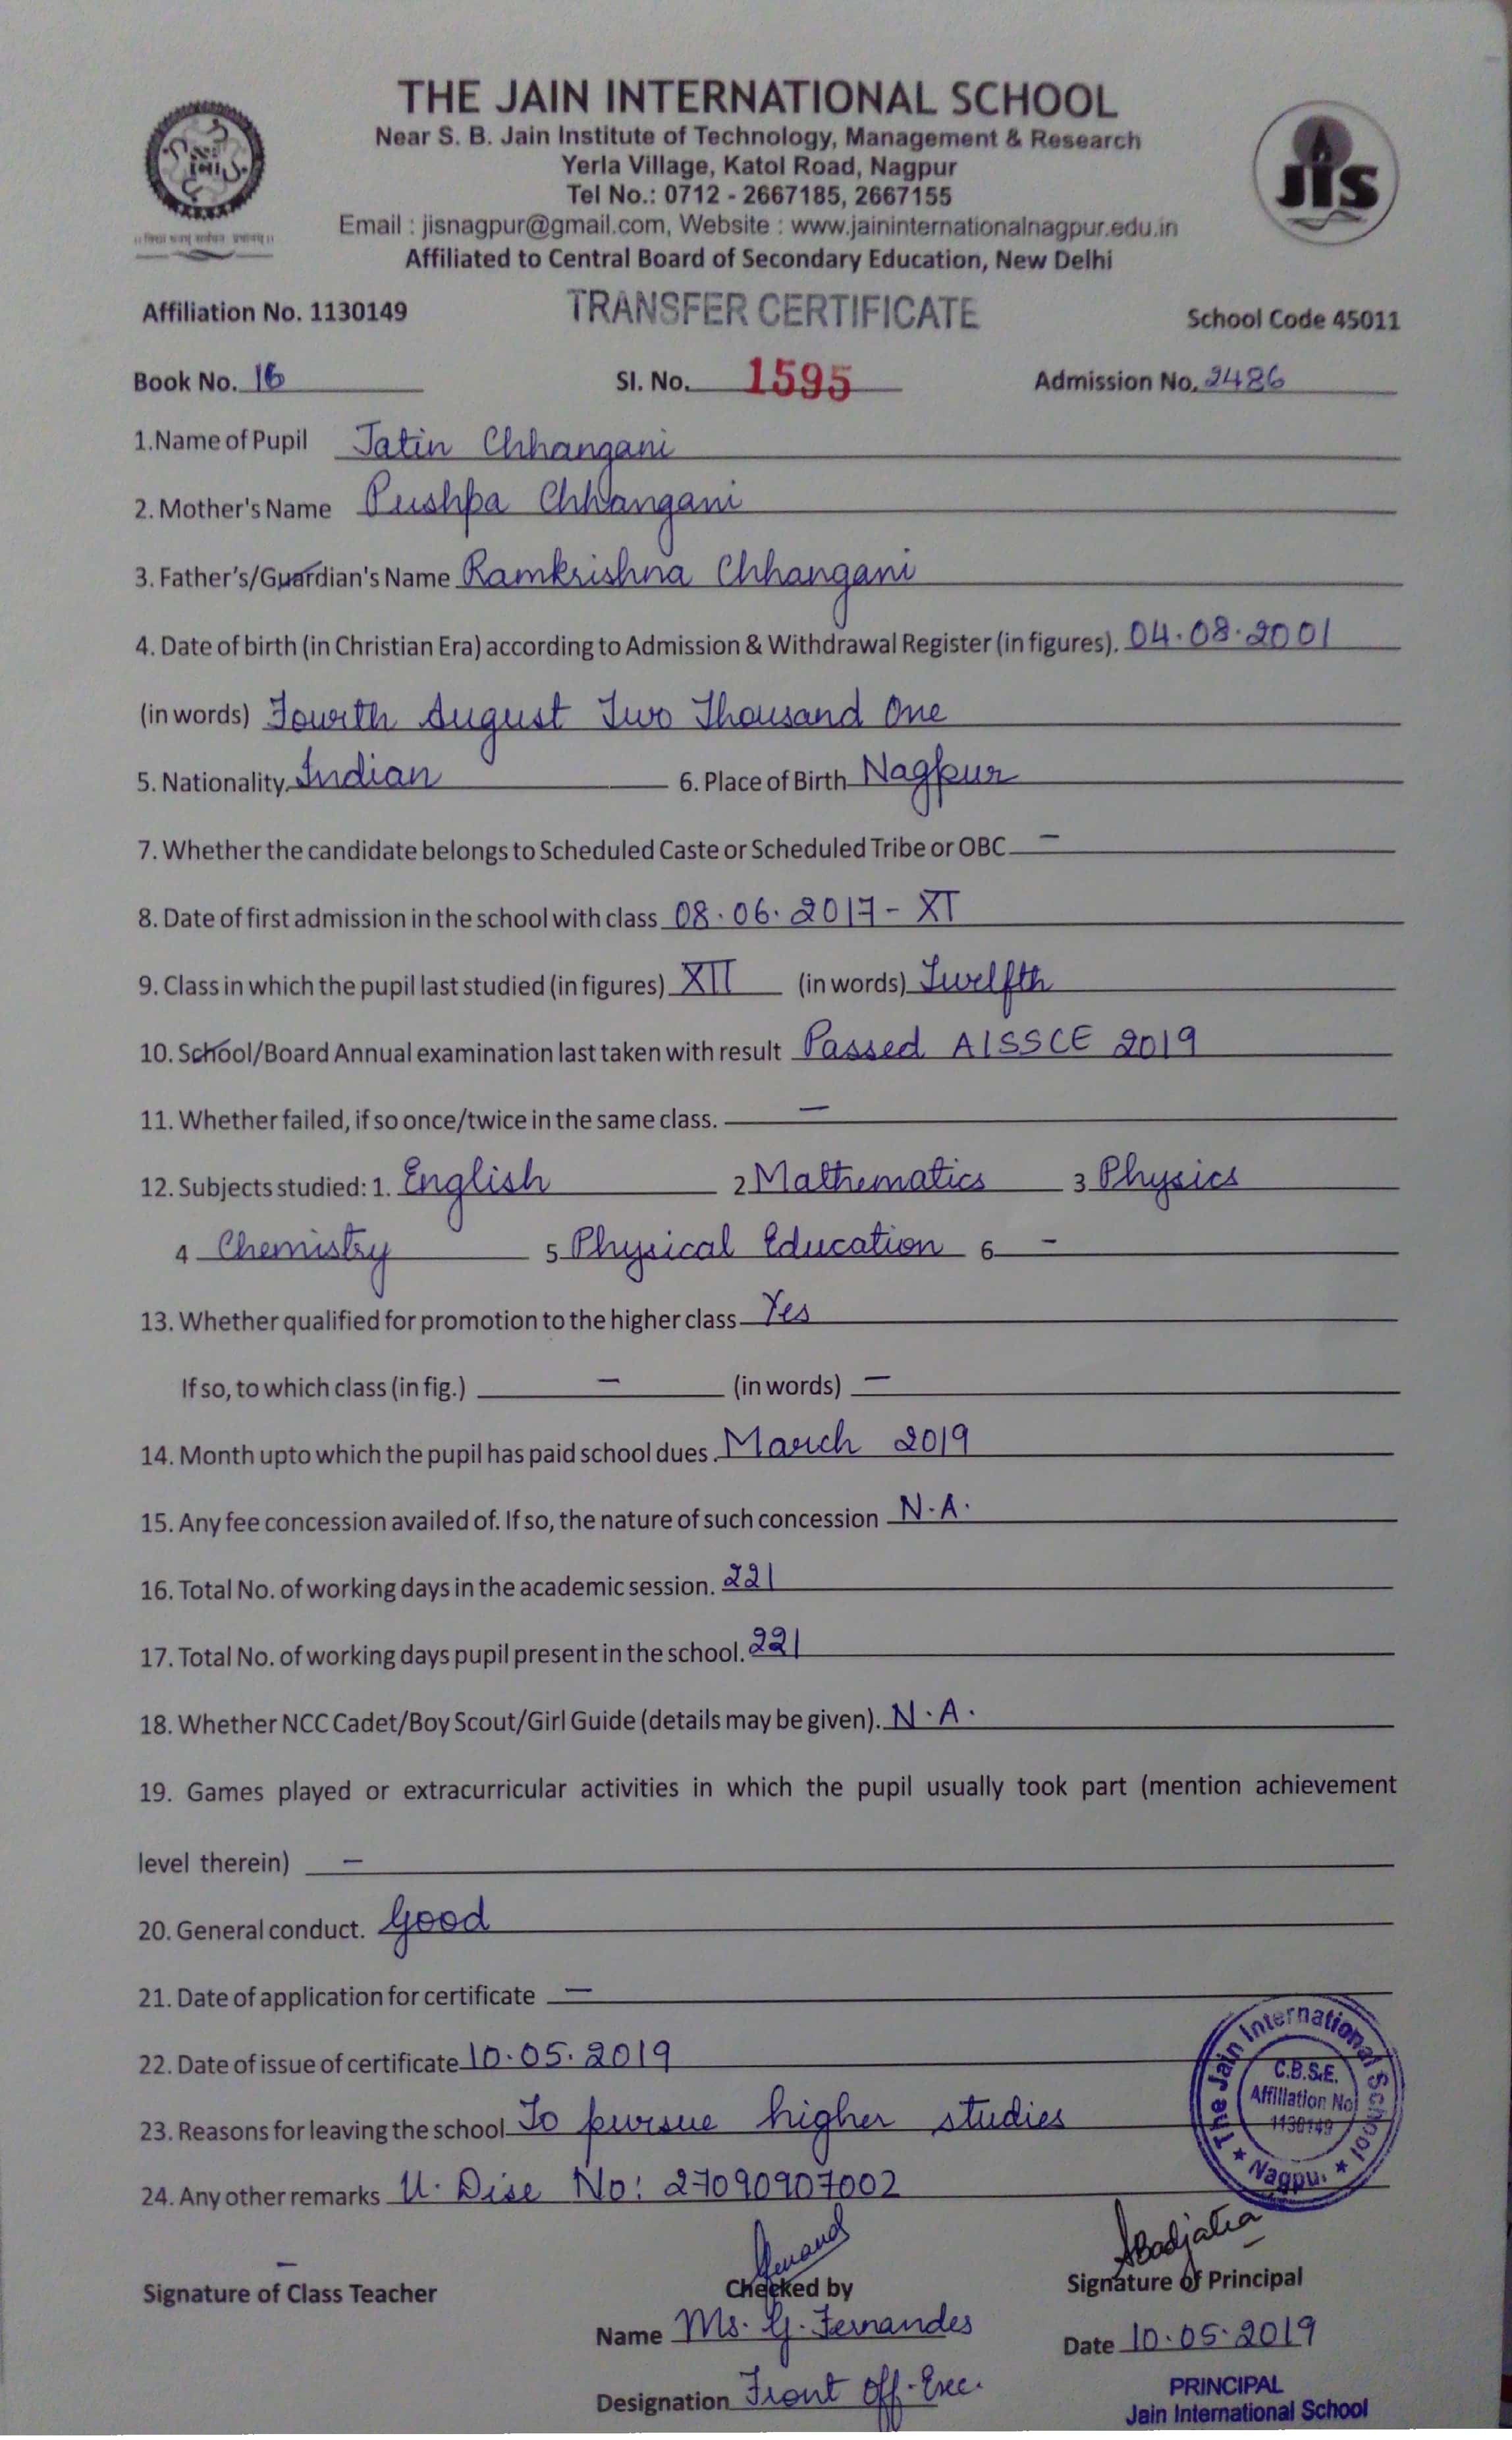 THE JAIN INTERNATIONAL SCHOOL
Near S. B. Jain Institute of Technology, Management & Research
Yerla Village, Katol Road, Nagpur
Tel No.: 0712 - 2667185, 2667155
Email : jisnagpur@gmail.com, Website : www.jaininternationalnagpur.edu.in
Affiliated to Central Board of Secondary Education, New Delhi
jis
Affiliation No. 1130149 TRANSFER CERTIFICATE School Code 45011
Book No. 16 Sl. No. 1595 Admission No. 2486
1.Name of Pupil Jatin Chhangani
2. Mother's Name Pushpa Chhangani
3. Father's/Guardian's Name Ramkrishna Chhangani
4. Date of birth (in Christian Era) according to Admission & Withdrawal Register (in figures). 04.08.2001
(in words) Fourth August Two Thousand One
5. Nationality Indian 6. Place of Birth Nagpur
7. Whether the candidate belongs to Scheduled Caste or Scheduled Tribe or OBC –
8. Date of first admission in the school with class 08.06.2017 - XI
9. Class in which the pupil last studied (in figures) XII (in words) Twelfth
10. School/Board Annual examination last taken with result Passed AISSCE 2019
11. Whether failed, if so once/twice in the same class. –
12. Subjects studied: 1. English 2 Mathematics 3 Physics
4 Chemistry 5 Physical Education 6 –
13. Whether qualified for promotion to the higher class Yes
If so, to which class (in fig.) – (in words) –
14. Month upto which the pupil has paid school dues. March 2019
15. Any fee concession availed of. If so, the nature of such concession N.A.
16. Total No. of working days in the academic session. 221
17. Total No. of working days pupil present in the school. 221
18. Whether NCC Cadet/Boy Scout/Girl Guide (details may be given). N.A.
19. Games played or extracurricular activities in which the pupil usually took part (mention achievement
level therein) –
20. General conduct. Good
21. Date of application for certificate –
22. Date of issue of certificate 10.05.2019
23. Reasons for leaving the school To pursue higher studies
24. Any other remarks U. Dise No: 27090907002
The Jain International School
C.B.S.E.
Affiliation No
1130149
Signature of Class Teacher – Checked by Signature of Principal
Name Ms. G. Fernandes Date 10.05.2019
Designation Front Off. Exec.
PRINCIPAL
Jain International School